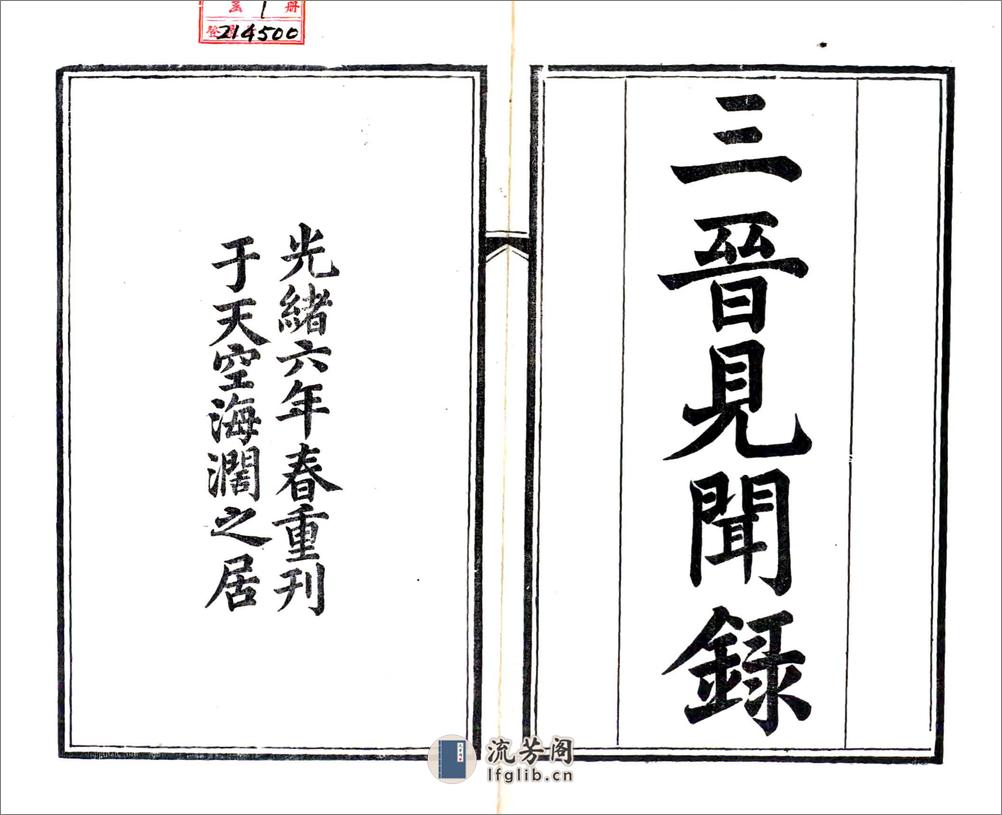 三晉見聞錄
光緒六年春重刊
于天空海濶之居
1
冊
214500
流芳阁
lfglib.cn